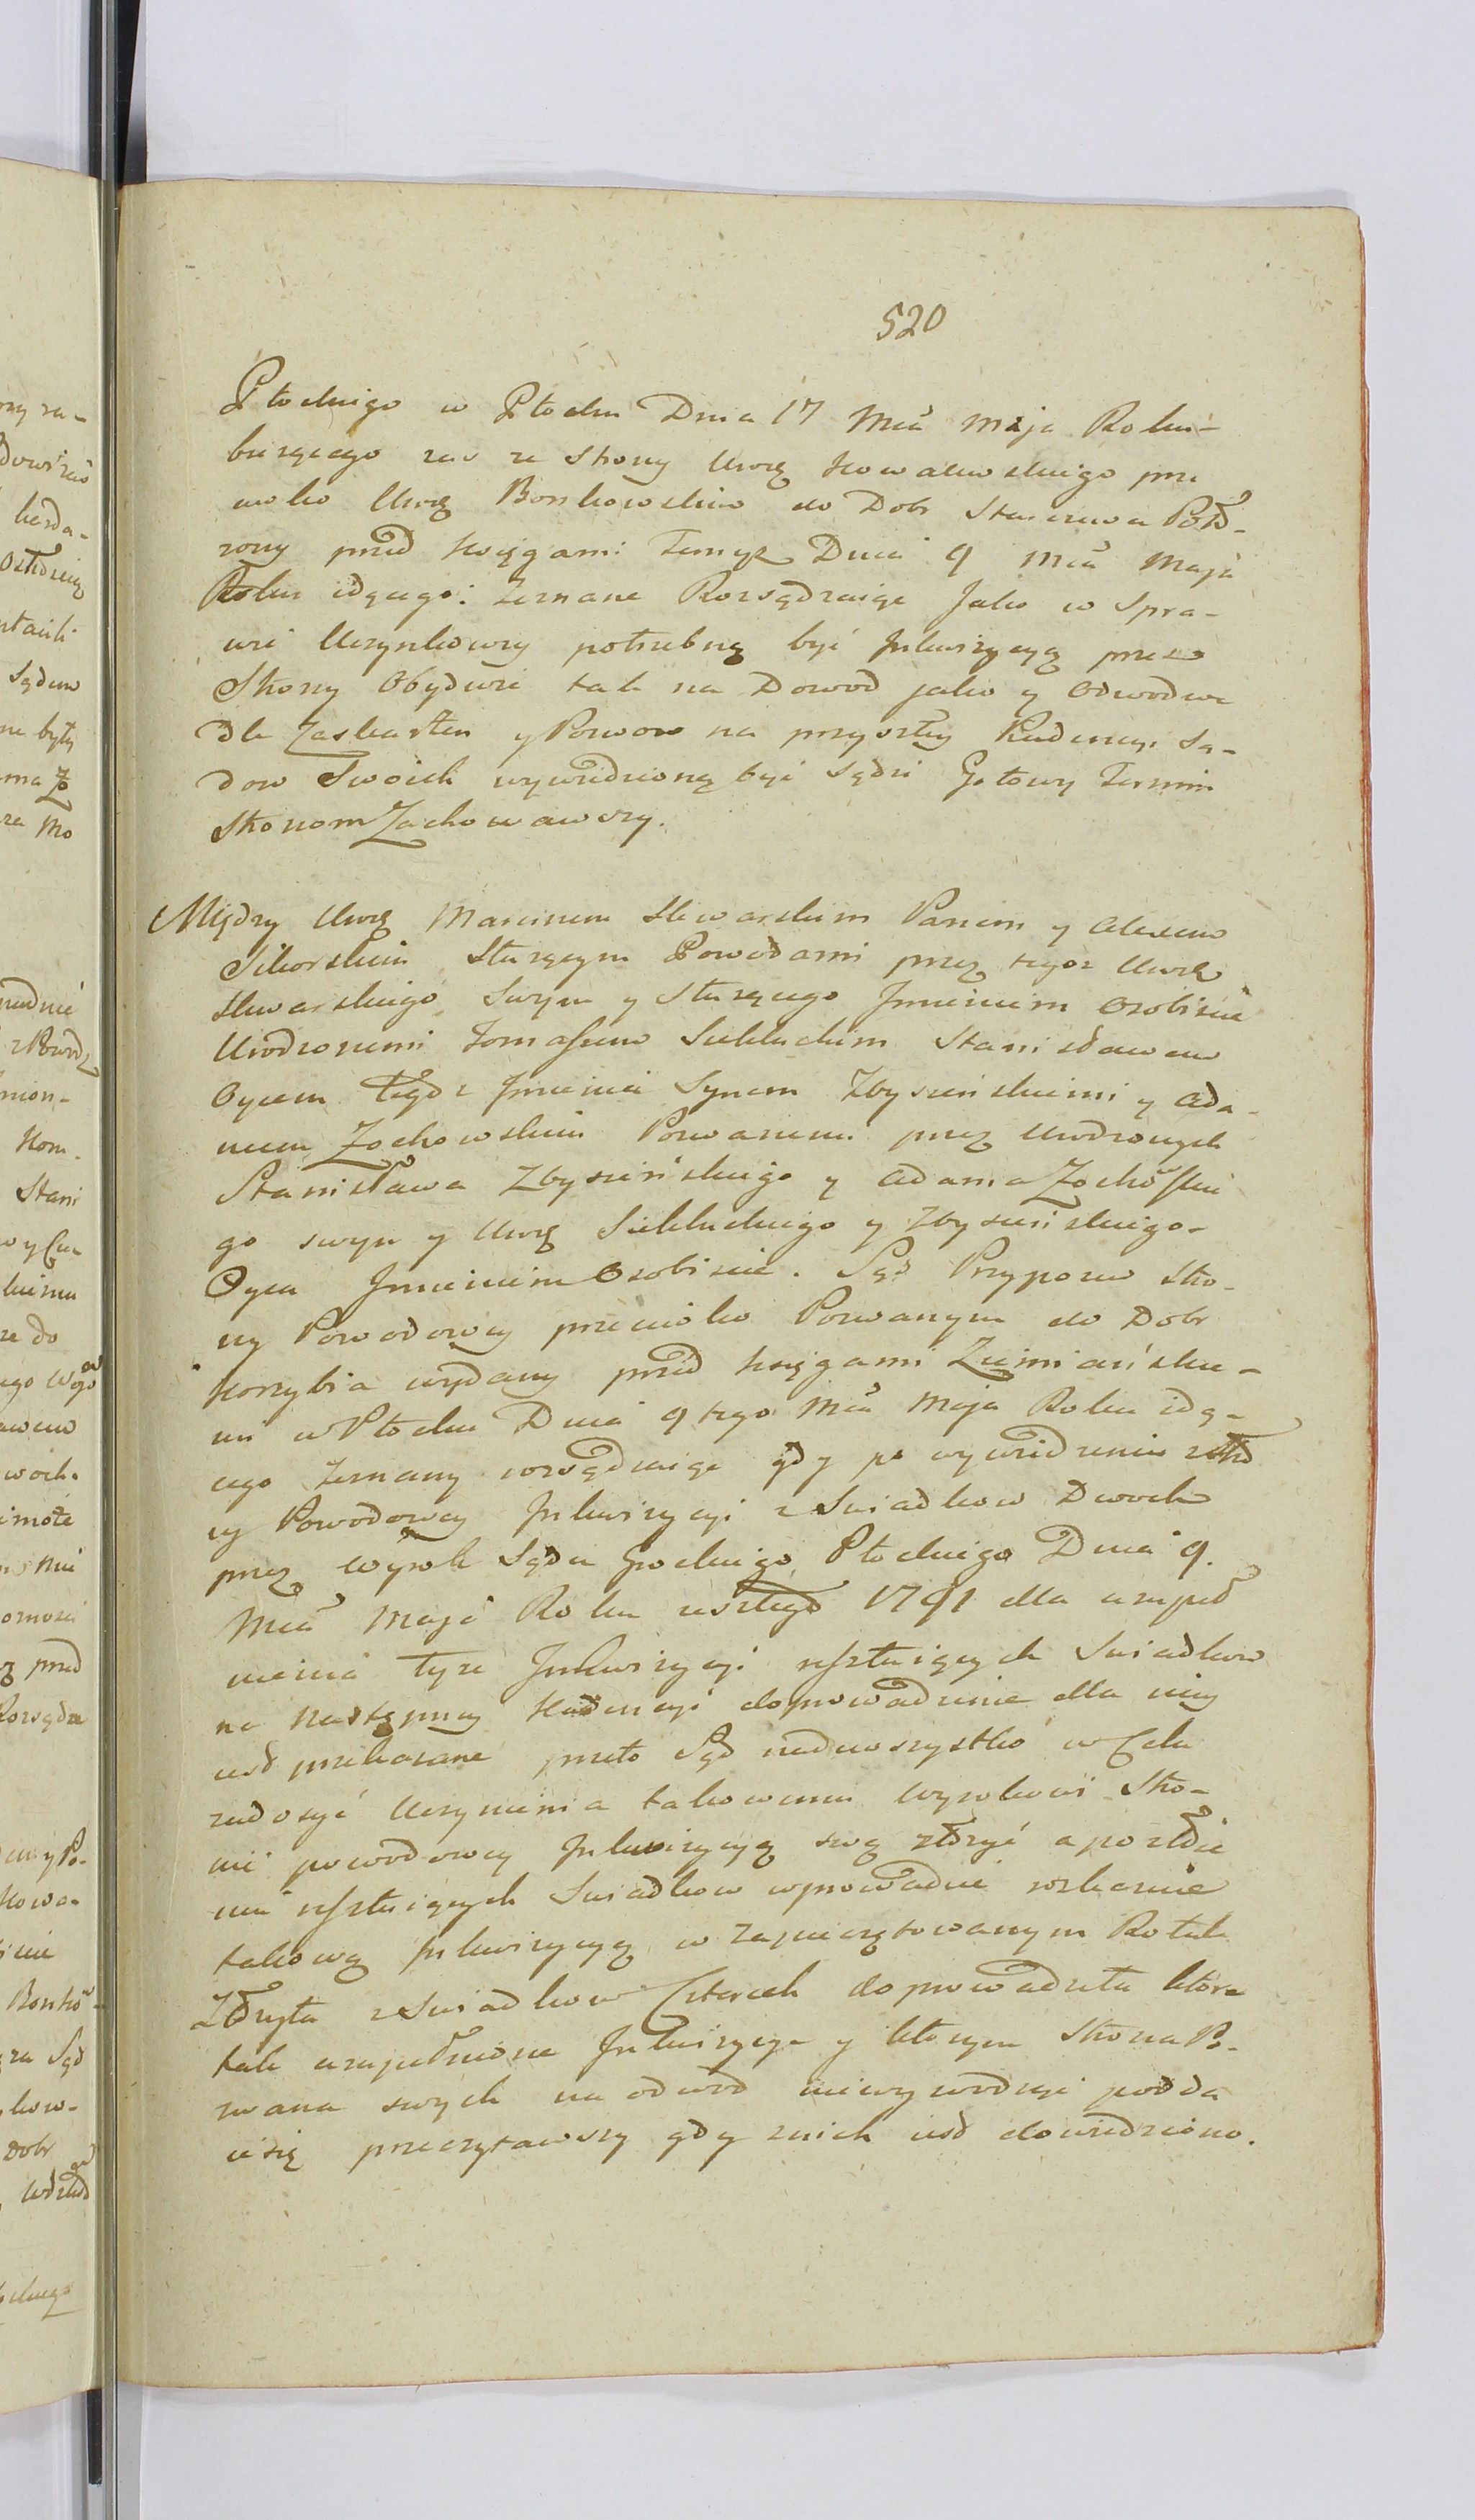 520
Płockiego w Płocku Dnia 17 Mca Maja Roku
bieżącego zas ze Strony Urog Kowalewskiego prze
ciwko Urog Bonkowskim do Dobr Staczewa Poło-
żony przed Księgami Temyż Dnia 9 Mca Maja
Roku idącego: Zeznane Rozsądzaiąc Jako w Spra-
wie Uczynkowey potrzebną być Inkwizycyą przez
Strony Obydwie tak na Dowod jako y Odwod we
dle Zaskarżen y Pozwow na przyszłey Kadencyi Są-
dow Swoich wywiedzioną być Sądzi Gotowy Termin
Stronom Zachowawszy.
Między Urog Marcinem Sliwarskim Panem y Alexem
Sikorskim Służącym Powodami przez tegoż Urog
Sliwarskiego Swym y Służącego Imieniem Osobiscie
Urodzonemi Tomaszem Siekluckim Stanisławem
Oycem Tegoż Imienia Synem Zbyszeńskiemi y Ada-
mem Zochowskim Pozwanemi przez Urodzonych
Stanisława Zbyszeńskiego y Adama Zochôskie
go swym y Urog Siekluckiego y Zbyszeńskiego
Oyca Imieniem Osobiscie. Sąd Przypozew Stro-
ny Powodowey przeciwko Pozwanym do Dobr
Korzybia wydany przed Księgami Ziemiańskie-
mi w Płocku Dnia 9 tego Mca Maja Roku idą-
cego Zeznany rozsądzaiąc gdy po wywiedzeniu ze Stro
ny Powodowey Inkwizycyi z Swiadkow Dwoch
przez Wyrok Sądu Grodzkiego Płockiego Dnia 9.
Mca Maja Roku zeszłego 1791 dla uzupeł
nienia tyże Inkwizycyi resztuiących Swiadkow
na Następney Kadencyi doprowadzenie dla niey
iest przekazane przeto Sąd nadewszystko w Celu
zadosyć Uczynienia takowemu Wyrokowi Stro-
nie powodowey Inkwizycyą swą złożyć a po złoże
niu resztuiących Swiadkow wprowadzić rozkazuie
takową Inkwizycyą w Zapieczętowanym Rotule
Złożyła z Swiadkow Czterech doprowadziła ktore
tak uzupełnione Inkwizycye y ktorym Strona Po-
zwana swych na odwod niewywodząc podda
ie się przeczytawszy gdy z nich iest dowiedziono.